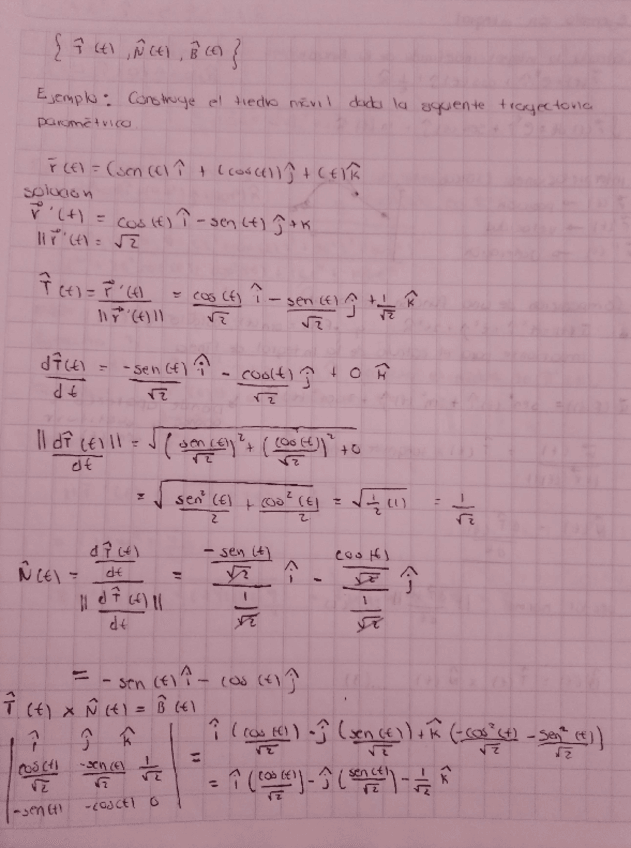 { T̂(t), N̂(t), B̂(t) }
Ejemplo: Construye el tiedro móvil dado la siguiente trayectoria
paramétrica
r̄(t) = (sen(t) î + (cos(t)) ĵ + (t) k̂
solucion
r⃗'(t) = cos(t) î - sen(t) ĵ + k
||r⃗'(t) = √2
T̂(t) = r⃗'(t) / ||r⃗'(t)|| = cos(t)/√2 î - sen(t)/√2 ĵ + 1/√2 k̂
dT̂(t)/dt = -sen(t)/√2 î - cos(t)/√2 ĵ + 0 k̂
||dT̂(t)/dt|| = √((sen(t)/√2)² + (cos(t)/√2)² + 0
= √(sen²(t)/2 + cos²(t)/2) = √(1/2 (1)) = 1/√2
N̂(t) = (dT̂(t)/dt) / ||dT̂(t)/dt|| = (-sen(t)/√2)/(1/√2) î - (cos(t)/√2)/(1/√2) ĵ
= -sen(t) î - cos(t) ĵ
T̂(t) × N̂(t) = B̂(t)
| î ĵ k̂ |
| cos(t)/√2 -sen(t)/√2 1/√2 | = î (cos(t)/√2) - ĵ (sen(t)/√2) + k̂ (-cos²(t)/√2 - sen²(t)/√2)
| -sen(t) -cos(t) 0 | = î (cos(t)/√2) - ĵ (sen(t)/√2) - 1/√2 k̂